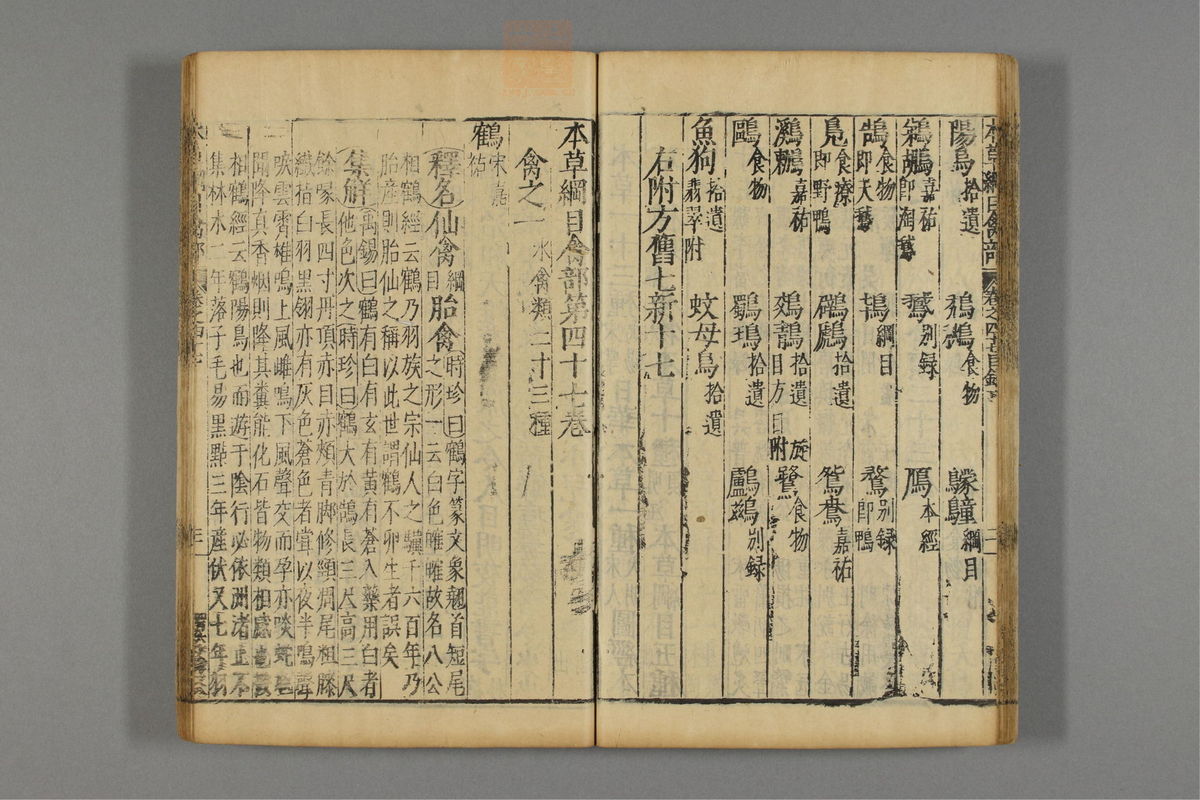 陽烏拾遺 鶖鶬食物 鸀𪆫綱目
鵜鶘嘉祐即淘鵝 鵝別録 鴈本經
鵠食物即天鵝 鴇綱目 鶩別録即鴨
鳧食療即野鴨 鸊鷉拾遺 鴛鴦嘉祐
鸂鶒嘉祐 鵁鶄拾遺旋目方目附 鷺食物
鷗食物 鸀鳿拾遺 鸕鷀別録
魚狗拾遺翡翠附 蚊母鳥拾遺
右附方舊七新十七
本草綱目禽部第四十七卷
禽之一 水禽類二十三種
鶴宋嘉祐
釋名仙禽綱目胎禽時珍曰鶴字篆文象翹首短尾
之形一云白色隺隺故名八公
相鶴經云鶴乃羽族之宗仙人之驥千六百年乃
胎産則胎仙之稱以此世謂鶴不卵生者誤矣
集解禹錫曰鶴有白有玄有黃有蒼入藥用白者
他色次之時珍曰鶴大於鵠長三尺高三尺
餘喙長四寸丹頂赤目赤頰青脚修頸凋尾粗膝
纖指白羽黑翎亦有灰色蒼色者嘗以夜半鳴聲
唳雲霄雄鳴上風雌鳴下風聲交而孕亦啖蛇虺
聞降真香烟則降其糞能化石皆物類相感也
相鶴經云鶴陽鳥也而遊于陰行必依洲渚止不
集林木二年落子毛易黑點三年産伏又七年羽